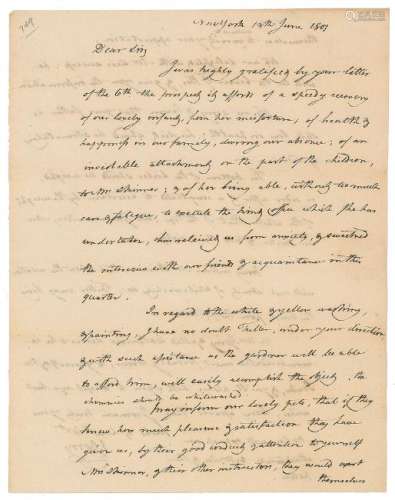 749
New York 12th June 1807
Dear Sir
I was highly gratified by your letter
of the 6th the prospect it affords of a speedy recovery
of our lovely infant, from her misfortune; of health &
happiness in our family, during our absence; of an
inviolable attachment on the part of the children,
to Mrs Skinner; & of her being able, without too much
care & fatigue, to execute the kind office which she has
undertaken, has relieved us from anxiety, & sweetned
the intercourse with our friends & acquaintance in this
quarter.
In regard to the white & yellow washing,
& painting, I have no doubt Fuller, under your direction
& with such assistance as the gardner will be able
to afford him, will easily accomplish the object. the
chimnies should be whitewashed
Pray inform our lovely pets, that if they
knew, how much pleasure & satisfaction they have
given us, by their good conduct & attention to yourself
Mrs Skinner, & their other instructors, they would exert
themselves